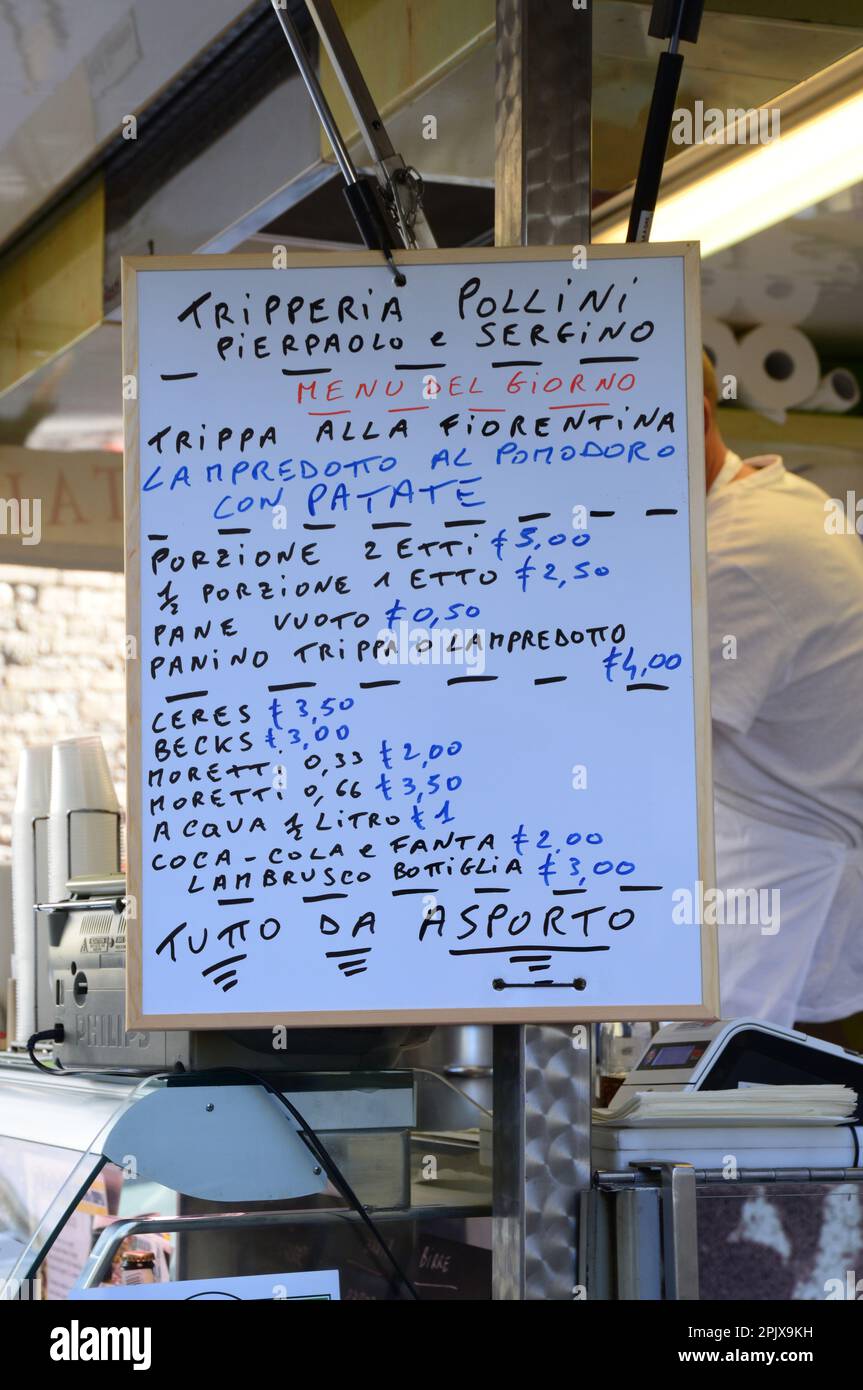 TRIPPERIA POLLINI
PIERPAOLO e SERGINO
MENU DEL GIORNO
TRIPPA ALLA FIORENTINA
LAMPREDOTTO AL POMODORO
CON PATATE
PORZIONE 2 ETTI € 5,00
½ PORZIONE 1 ETTO € 2,50
PANE VUOTO € 0,50
PANINO TRIPPA O LAMPREDOTTO
€ 4,00
CERES € 3,50
BECKS € 3,00
MORETTI 0,33 € 2,00
MORETTI 0,66 € 3,50
ACQUA ½ LITRO € 1
COCA-COLA e FANTA € 2,00
LAMBRUSCO BOTTIGLIA € 3,00
TUTTO DA ASPORTO
PHILIPS
BIRRE
alamy
Image ID: 2PJX9KH
www.alamy.com